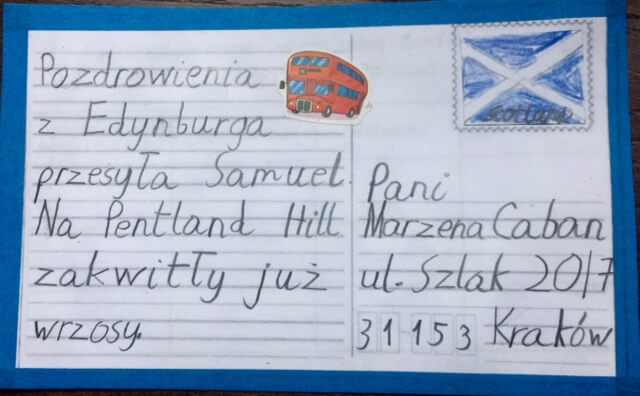 Pozdrowienia
z Edynburga
przesyła Samuel.
Na Pentland Hill
zakwitły już
wrzosy.
scotland
Pani
Marzena Caban
ul. Szlak 20/7
31 153 Kraków